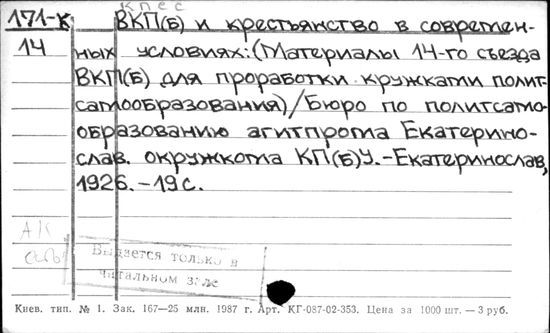 КПСС
171-К ВКП(б) и крестьянство в современ-
14 ных условиях: (Материалы 14-го съезда
ВКП(б) для проработки кружками полит-
самообразования)/Бюро по политсамо-
образованию агитпропа Екатерино-
слав. окружкома КП(б)У.-Екатеринослав,
1926.-19с.
АК
Выдается только в
читальном зале
Киев. тип. № 1. Зак. 167—25 млн. 1987 г. Арт. КГ-087-02-353. Цена за 1000 шт. — 3 руб.